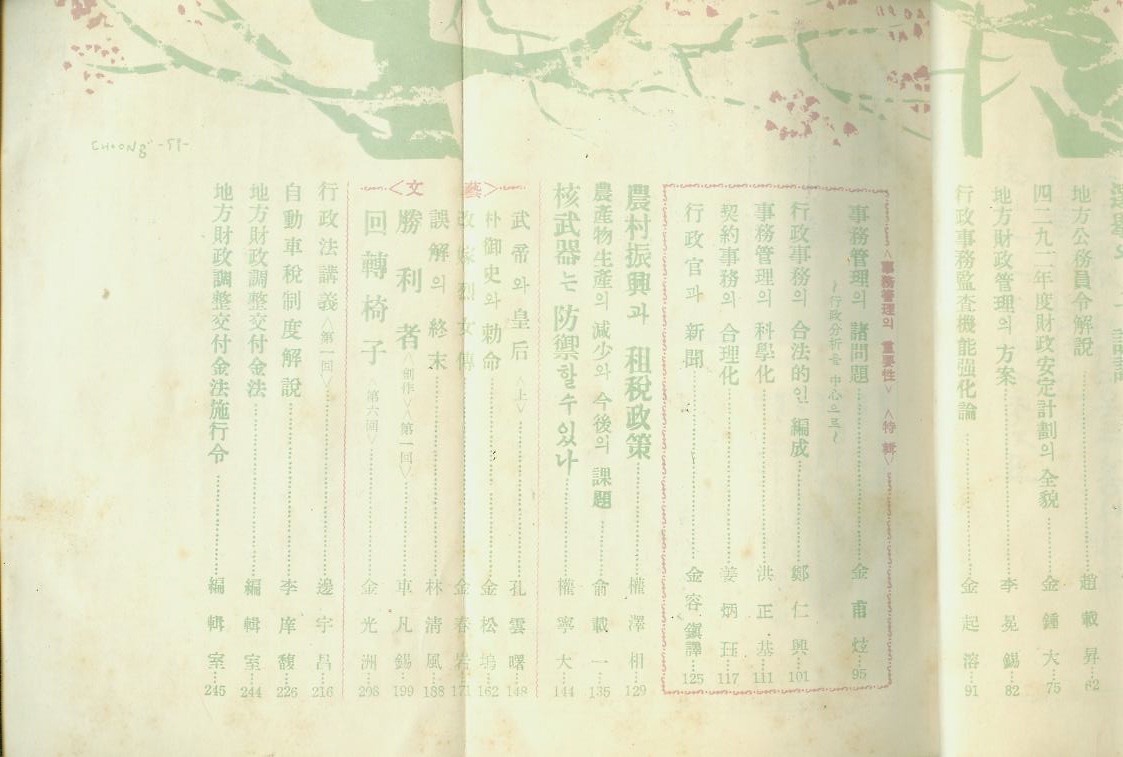 地方公務員令解說 趙載昇 62
四二九二年度財政安定計劃의 全貌 金鍾大 75
地方財政管理의 方案 李冕錫 82
行政事務監査機能强化論 金起溶 91
<事務管理의 重要性> <特輯>
事務管理의 諸問題 金甫炫 95
~行政分析을 中心으로~
行政事務의 合法的인 編成 鄭仁興 101
事務管理의 科學化 洪正基 111
契約事務의 合理化 姜炳珏 117
行政官과 新聞 金容鎭譯 125
農村振興과 租稅政策 權澤相 129
農產物生產의 減少와 今後의 課題 俞載一 135
核武器는 防禦할수있나 權寧大 144
<文藝>
武帝와 皇后 <上> 孔雲曙 148
朴御史와 勅命 金松塢 162
改嫁烈女傳 金春岩 171
誤解의 終末 林淸風 188
勝利者 <創作> <第一回> 車凡錫 199
回轉椅子 <第六回> 金光洲 208
行政法講義 <第一回> 邊宇昌 216
自動車稅制度解說 李庠馥 226
地方財政調整交付金法 編輯室 244
地方財政調整交付金法施行令 編輯室 245
CHOONG -59-